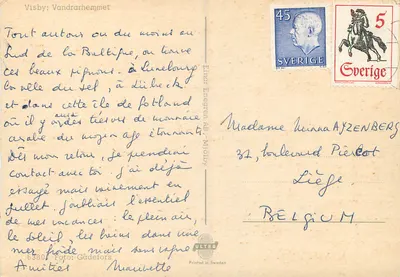 Visby: Vandrarhemmet
Tout autour ou du moins en
Sud de la Baltique, on trouve
ces beaux pignons - à Lunebourg
la ville du sel, à Lübeck
et dans cette île de Gotland
où il y a aussi des trésors de monnaie
arabe du moyen age étonnants
Dès mon retour, je prendrai
contact avec toi. j'ai déjà
essayé mais vainement en
juillet. J'oubliais l'essentiel
de mes vacances : le plein air,
le soleil, les bains dans une
mer froide mais sans vague
Amitiés
45
SVERIGE
5
Sverige
Madame Numa AYZENBERG
32, boulevard Piercot
Liège
BELGIUM
ULTRA
Printed in Sweden